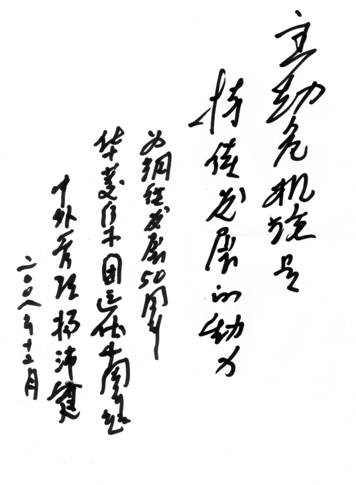 主动危机是
持续发展的动力
为钢铁发展50周年
华菱集团运作十周年题
中外管理杨沛霆
二〇〇八年十二月